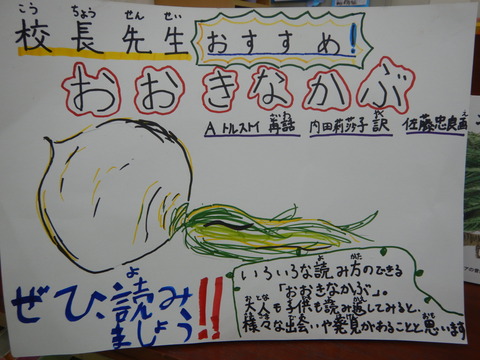 校長先生 おすすめ!
こう ちょう せん せい
おおきなかぶ
A トルストイ 再話 内田莉莎子 訳 佐藤忠良 画
ぜひ、読み
ましょう!!
いろいろな読み方のできる
「おおきなかぶ」。
大人も子供も読み返してみると、
様々な出会いや発見があることと思います